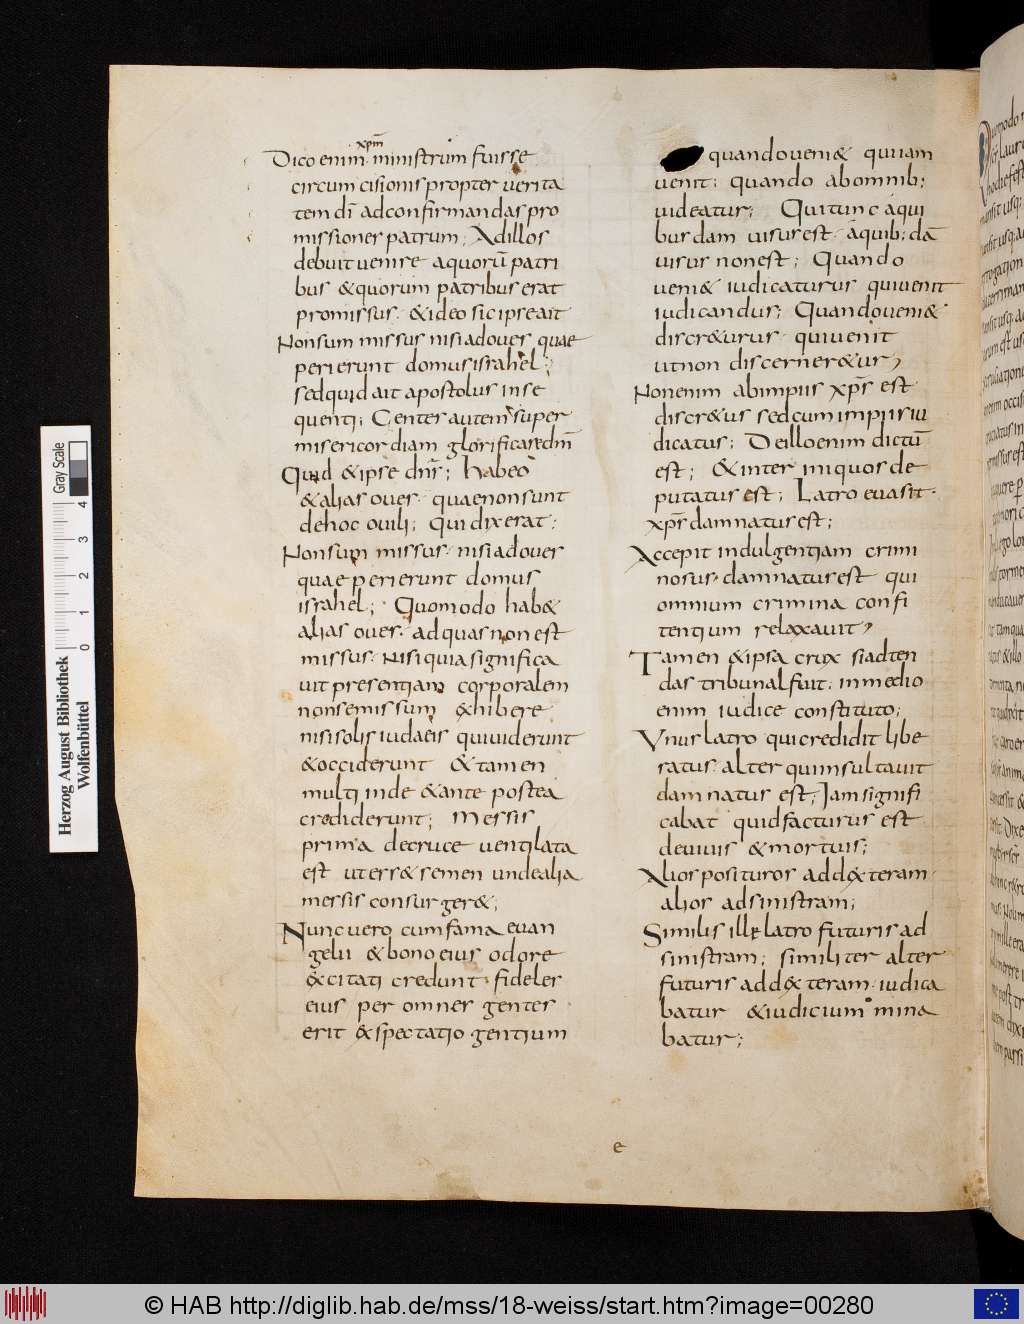 xp̄m
Dico enim ministrum fuisse
circumcisionis propter uerita
tem dī ad confirmandas pro
missiones patrum; Ad illos
debuit uenire a quorū patri
bus & quorum patribus erat
promissus· & ideo sic ipse ait
Non sum missus nisi ad oues quae
perierunt domus israhel;
sed quid ait apostolus in se
quenti; Gentes autem super
misericordiam glorificare dn̄m
Quid & ipse dn̄s; Habeo
& alias oues· quae non sunt
de hoc ouili; Qui dixerat;
Non sum missus· nisi ad oues
quae perierunt domus
israhel; Quomodo hab&
alias oues· ad quas non est
missus· Nisi quia significa
uit presentiam corporalem
non se missum exhibere
nisi solis iudaeis qui uiderunt
& occiderunt & tamen
multi inde & ante postea
crediderunt; Messis
prima de cruce uentilata
est ut ess& semen unde alia
messis consurger&;
Nunc uero cum fama euan
gelii & bono eius odore
excitati credunt· fideles
eius per omnes gentes
erit expectatio gentium
quando ueni& qui iam
uenit; quando ab omnib;
uideatur; Qui tunc a qui
busdam uisus est· a quib; dā
uisus non est; Quando
ueni& iudicaturus qui uenit
iudicandus; Quando ueni&
discr&urus· qui uenit
ut non discerner&ur;
Non enim ab impiis xp̄s est
discr&us sed cum impiis iu
dicatus; De illo enim dictū
est; & inter iniquos de
putatus est; Latro euasit·
xp̄s damnatus est;
Accepit indulgentiam crimi
nosus· damnatus est qui
omnium crimina confi
tentium relaxauit;
Tamen & ipsa crux si adten
das tribunal fuit· in medio
enim iudice constituto;
Vnus latro qui credidit libe
ratus· alter qui insultauit
damnatus est; Iam signifi
cabat quid facturus est
de uiuis & mortuis;
Alios positurus ad dexteram
alios ad sinistram;
Similis ille latro futuris ad
sinistram; similiter alter
futuris ad dexteram· iudica
batur & iudicium mina
batur;
e
Herzog August Bibliothek
Wolfenbüttel
Gray Scale
0 1 2 3 4
© HAB http://diglib.hab.de/mss/18-weiss/start.htm?image=00280